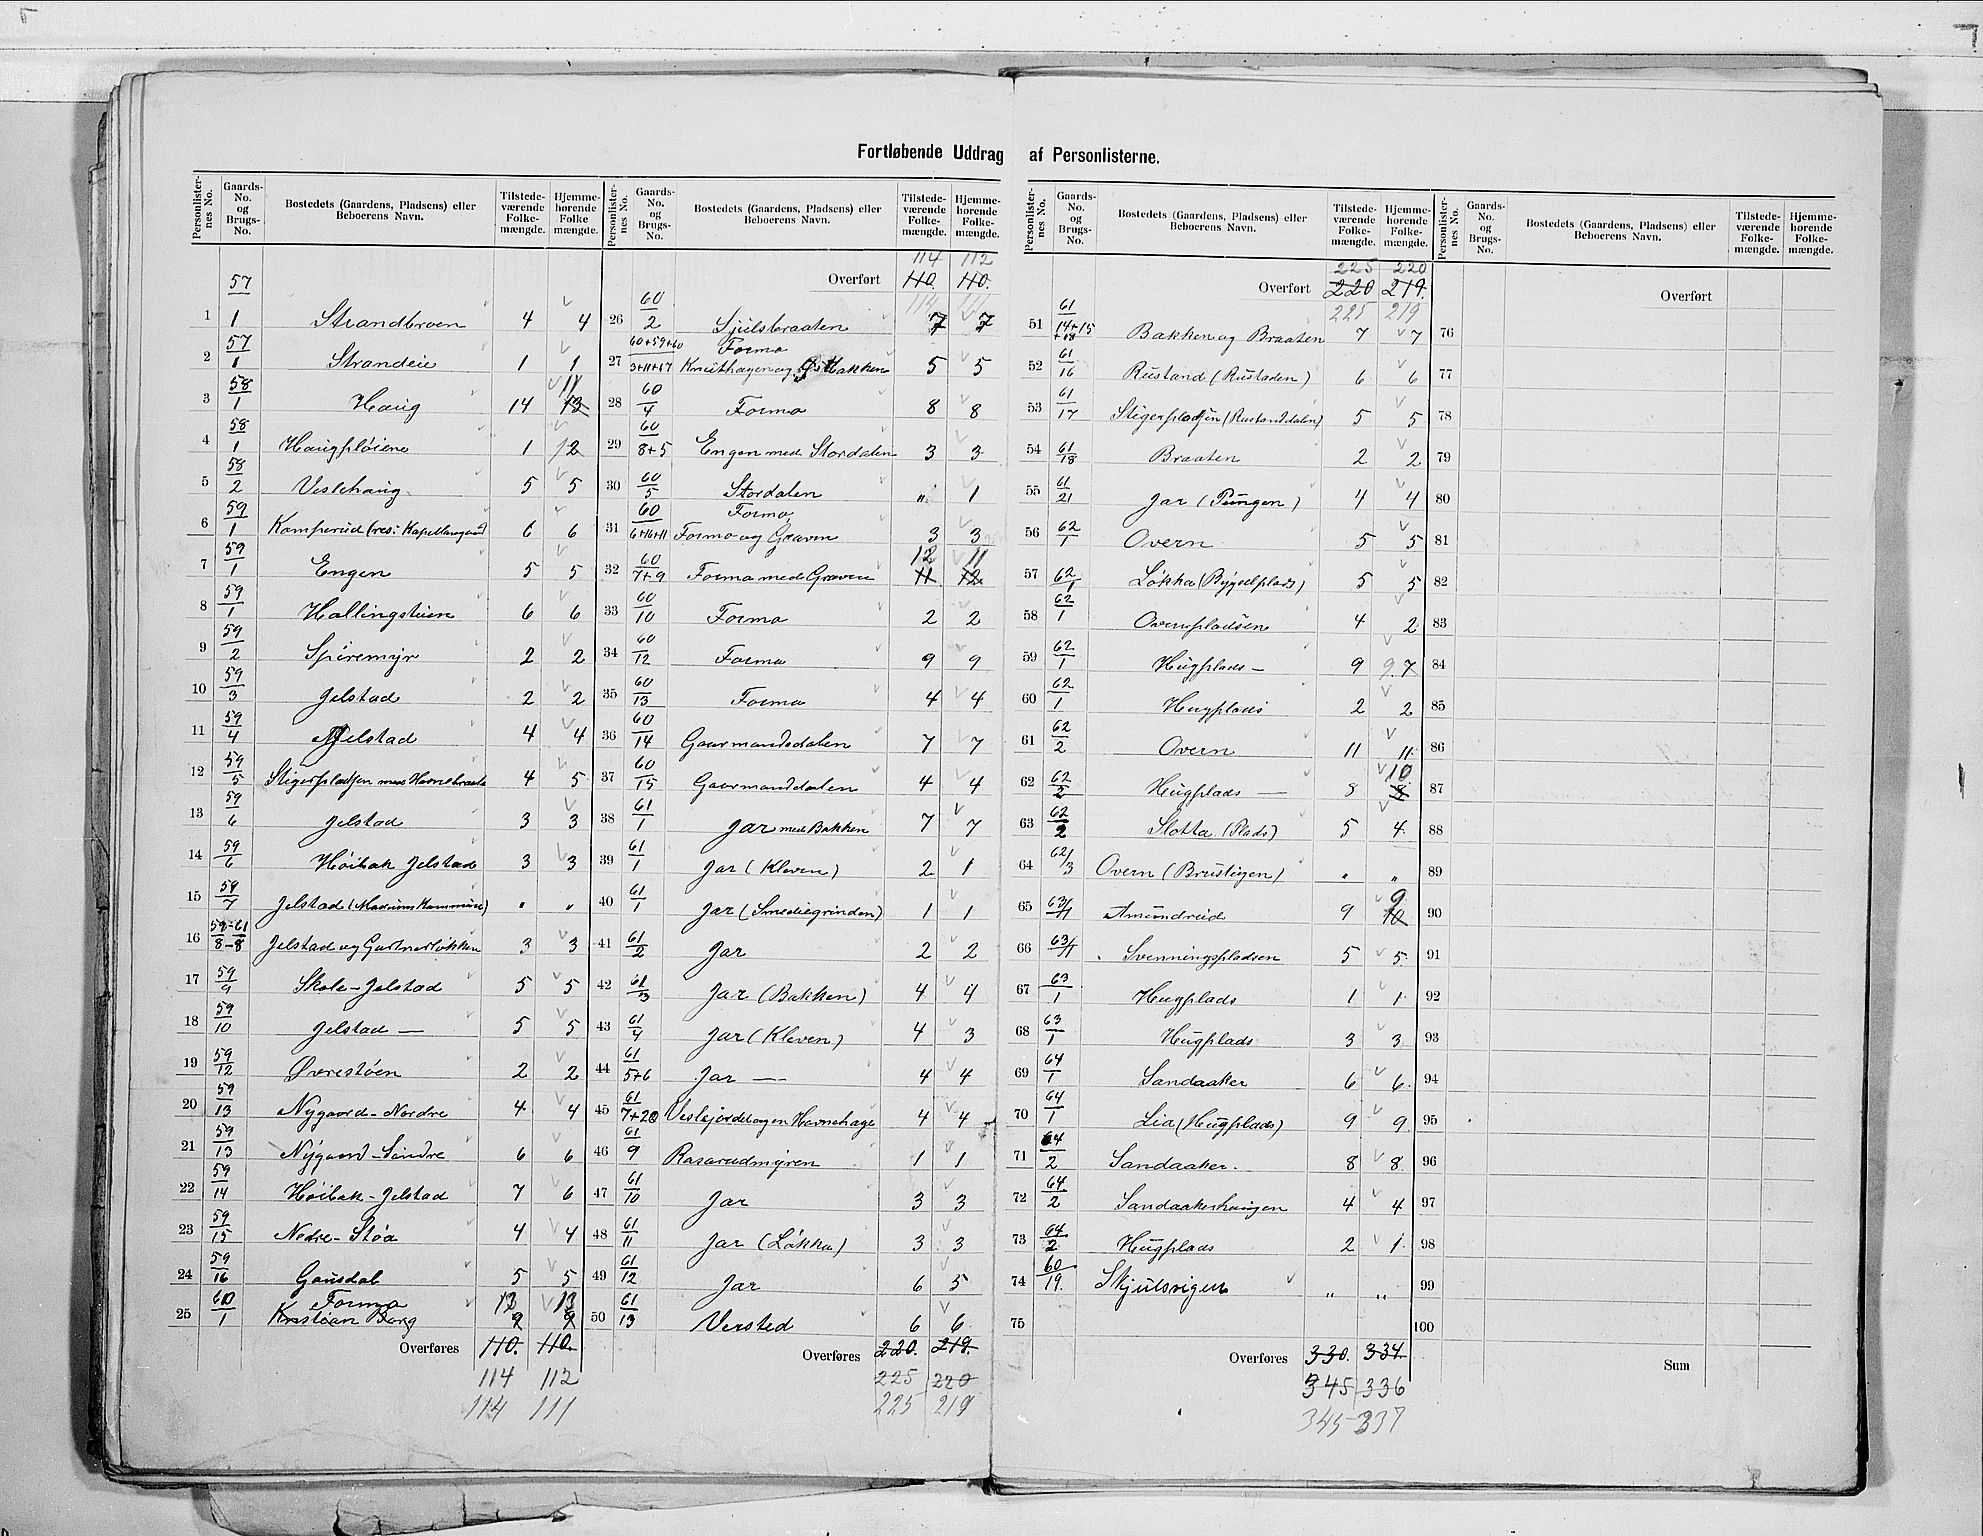 Fortløbende Uddrag af Personlisterne.
Personlister-nes No. | Gaards-No. og Brugs-No. | Bostedets (Gaardens, Pladsens) eller Beboerens Navn. | Tilstede-værende Folke-mængde. | Hjemme-hørende Folke mængde.
1 | 57/1 | Strandbroen | 4 | 4
2 | 57/1 | Strandeie | 1 | 1
3 | 58/1 | Haug | 14 | 13 11
4 | 58/1 | Haugpløiene | 1 | 2
5 | 58/2 | Veslehaug | 5 | 5
6 | 59/1 | Kamperud (res: Kapellangaard) | 6 | 6
7 | 59/1 | Engen | 5 | 5
8 | 59/1 | Hallingsteien | 6 | 6
9 | 59/2 | Spiremyr | 2 | 2
10 | 59/3 | Jelstad | 2 | 2
11 | 59/4 | Jelstad | 4 | 4
12 | 59/5 | Stigerpladsen med Havnebraate | 4 | 5
13 | 59/6 | Jelstad | 3 | 3
14 | 59/6 | Høibak Jelstad | 3 | 3
15 | 59/7 | Jelstad (Modums Kommune) | " | "
16 | 59-61/8-8 | Jelstad og Gartnerløkken | 3 | 3
17 | 59/9 | Skole-Jelstad | 5 | 5
18 | 59/10 | Jelstad — | 5 | 5
19 | 59/12 | Øvrestøen | 2 | 2
20 | 59/13 | Nygaard-Nordre | 4 | 4
21 | 59/13 | Nygaard-Søndre | 6 | 6
22 | 59/14 | Høibak-Jelstad | 7 | 6
23 | 59/15 | Nedre-Støa | 4 | 4
24 | 59/16 | Gausdal | 5 | 5
25 | 60/1 | Formo Kristian Borg | 12 9 | 13 9
Overføres | 110. | 110.
114 | 112
114 | 111
Personlister-nes No. | Gaards-No. og Brugs-No. | Bostedets (Gaardens, Pladsens) eller Beboerens Navn. | Tilstede-værende Folke-mængde. | Hjemme-hørende Folke-mængde.
114 | 112
Overført | 110. | 110.
114 | 111
26 | 60/2 | Sjulsbraaten | 7 | 7
27 | 60+59+60/3+11+17 | Formo Knuthagen og Ø. Hakken | 5 | 5
28 | 60/4 | Formo | 8 | 8
29 | 60/8+5 | Engen med Stordalen | 3 | 3
30 | 60/5 | Stordalen | " | 1
31 | 60/6+16+11 | Formo Formo og Graven | 3 | 3
32 | 60/7+9 | Formo med Graven | 11 12 | 12 11
33 | 60/10 | Formo | 2 | 2
34 | 60/12 | Formo | 9 | 9
35 | 60/13 | Formo | 4 | 4
36 | 60/14 | Gaarmandsdalen | 7 | 7
37 | 60/15 | Gaarmanddalen | 4 | 4
38 | 61/1 | Jar med Bakken | 7 | 7
39 | 61/1 | Jar (Kleven) | 2 | 1
40 | 61/1 | Jar (Smediegrinden) | 1 | 1
41 | 61/2 | Jar | 2 | 2
42 | 61/3 | Jar (Bakken) | 4 | 4
43 | 61/4 | Jar (Kleven) | 4 | 3
44 | 61/5+6 | Jar — | 4 | 4
45 | 61/7+20 | Veslejordet og en Havnehage | 4 | 4
46 | 61/9 | Rasarudmyren | 1 | 1
47 | 61/10 | Jar | 3 | 3
48 | 61/11 | Jar (Løkka) | 3 | 3
49 | 61/12 | Jar | 6 | 5
50 | 61/13 | Versted | 6 | 6
Overføres | 220. | 219.
225 | 220
225 | 219
Personlister-nes No. | Gaards-No. og Brugs-No. | Bostedets (Gaardens, Pladsens) eller Beboerens Navn. | Tilstede-værende Folke-mængde. | Hjemme-hørende Folke-mængde.
225 | 220
Overført | 220 | 219.
225 | 219
51 | 61/14+15+18 | Bakken og Braaten | 7 | 7
52 | 61/16 | Rustand (Rustaden) | 6 | 6
53 | 61/17 | Stigerpladsen (Rustanddalen) | 5 | 5
54 | 61/18 | Braaten | 2 | 2
55 | 61/21 | Jar (Pungen) | 4 | 4
56 | 62/1 | Overn | 5 | 5
57 | 62/1 | Løkka (Bygselplads) | 5 | 5
58 | 62/1 | Overnpladsen | 4 | 2
59 | 62/1 | Hugplads — | 9 | 9. 7
60 | 62/1 | Hugplads | 2 | 2
61 | 62/2 | Overn | 11 | 11
62 | 62/2 | Hugplads — | 8 | 8 10
63 | 62/2 | Slotta (Plads) | 5 | 4
64 | 62/3 | Overn (Brustigen) | " | "
65 | 63/1 | Amundrud | 9 | 10 9
66 | 63/1 | Svenningspladsen | 5 | 5
67 | 63/1 | Hugplads | 1 | 1
68 | 63/1 | Hugplads | 3 | 3
69 | 64/1 | Sandaaker | 6 | 6
70 | 64/1 | Lia (Hugplads) | 9 | 9
71 | 64/2 | Sandaaker. | 8 | 8
72 | 64/2 | Sandaakerhaugen | 4 | 4
73 | 64/2 | Hugplads | 2 | 1
74 | 60/19. | Skjulsvigen | " | "
75
Overføres | 330. | 334.
345 | 336
345 | 337
Personlister-nes No. | Gaards-No. og Brugs-No. | Bostedets (Gaardens, Pladsens) eller Beboerens Navn. | Tilstede-værende Folke-mængde. | Hjemme-hørende Folke-mængde.
Overført
76
77
78
79
80
81
82
83
84
85
86
87
88
89
90
91
92
93
94
95
96
97
98
99
100
Sum